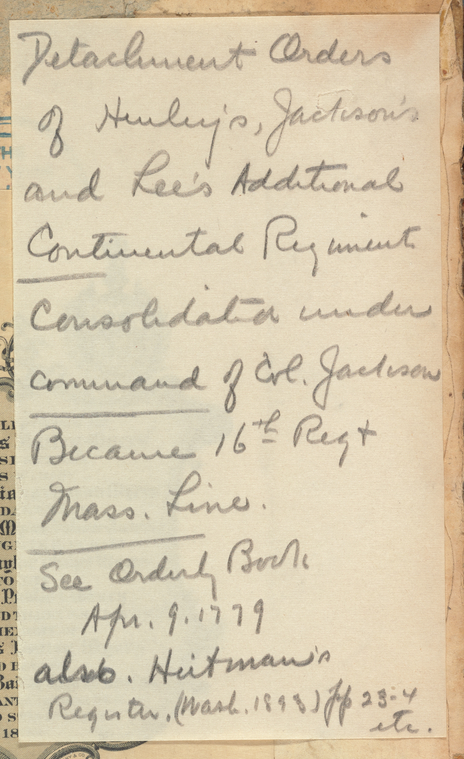 Detachment Orders
of Henley's, Jackson's
and Lee's Additional
Continental Regiments
Consolidated under
command of Col. Jackson
Became 16th Regt
Mass. Line.
See Orderly Book
Apr. 9. 1779
also. Heitman's
Register. (Wash. 1893) pp 23-4
etc.